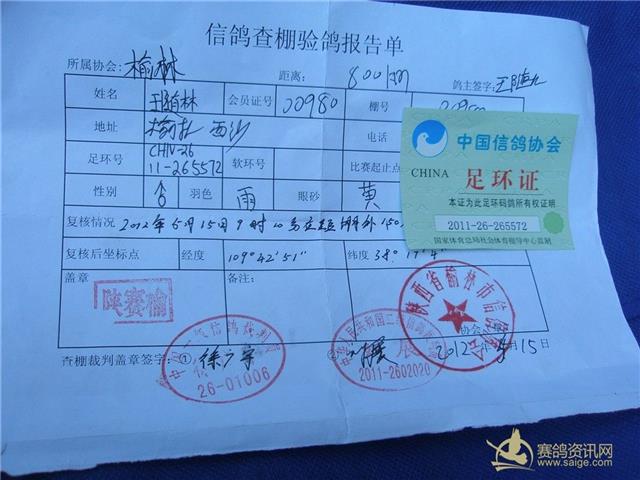 信鸽查棚验鸽报告单
所属协会: 榆林 距离: 800 km 鸽主签字:
姓名 林 会员证号 00980 棚号
地址 榆林 西沙 电话
足环号 CHN-26 11-265572 软环号 比赛起止点
性别 ♂ 羽色 雨 眼砂 黄
复核情况 2012年5月15日9时 150
复核后坐标点 经度 109°42'51" 纬度 38°
盖章 备注:
陕赛榆
陕西省榆林市信鸽协会
2012 年 月 15
查棚裁判盖章签字:① 徐广宇 ②
26-01006
2011-2602020
中国信鸽协会
CHINA 足环证
本证为此足环码鸽所有权证明
2011-26-265572
国家体育总局社会体育指导中心监制
赛鸽资讯网
www.saige.com